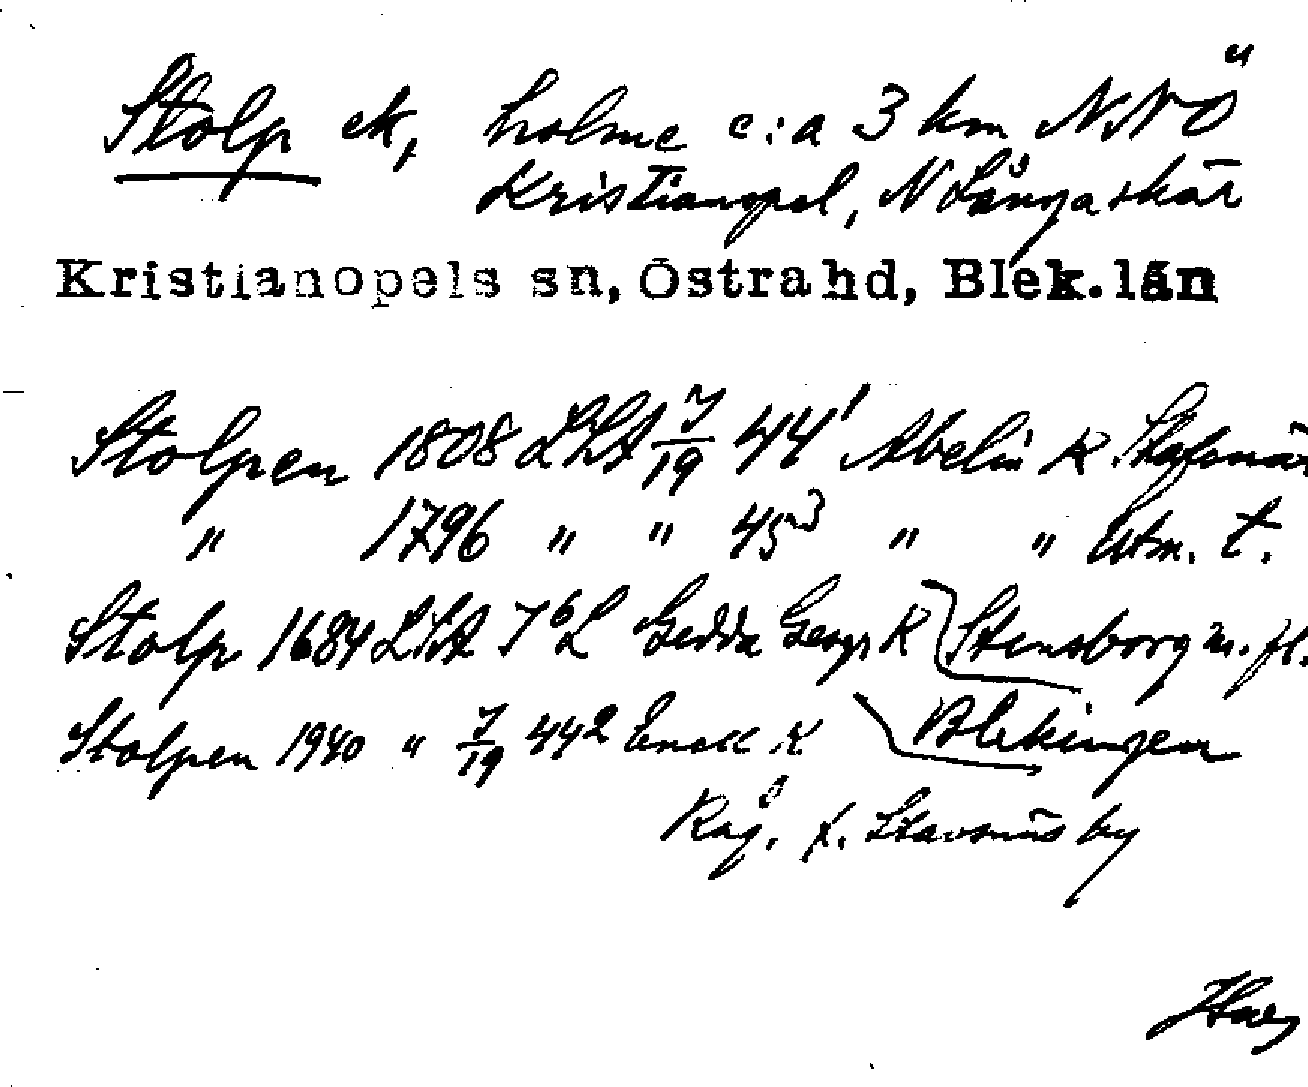 Stolp ek, holme c:a 3 km NNÖ
Kristianopel, N Långaskär
Kristianopels sn, Östra hd, Blek. län
Stolpen 1808 LSA 7/19 44¹ Abelin K Stafsnäs
" 1796 " " 45³ " " Utm. t.
Stolp 1684 LSA 7⁶L Gedda Geogr K Stensborg m. fl.
Stolpen 1940 " 7/19 44² Enell K Blekingen
Rågå. f. Stavsnäs by